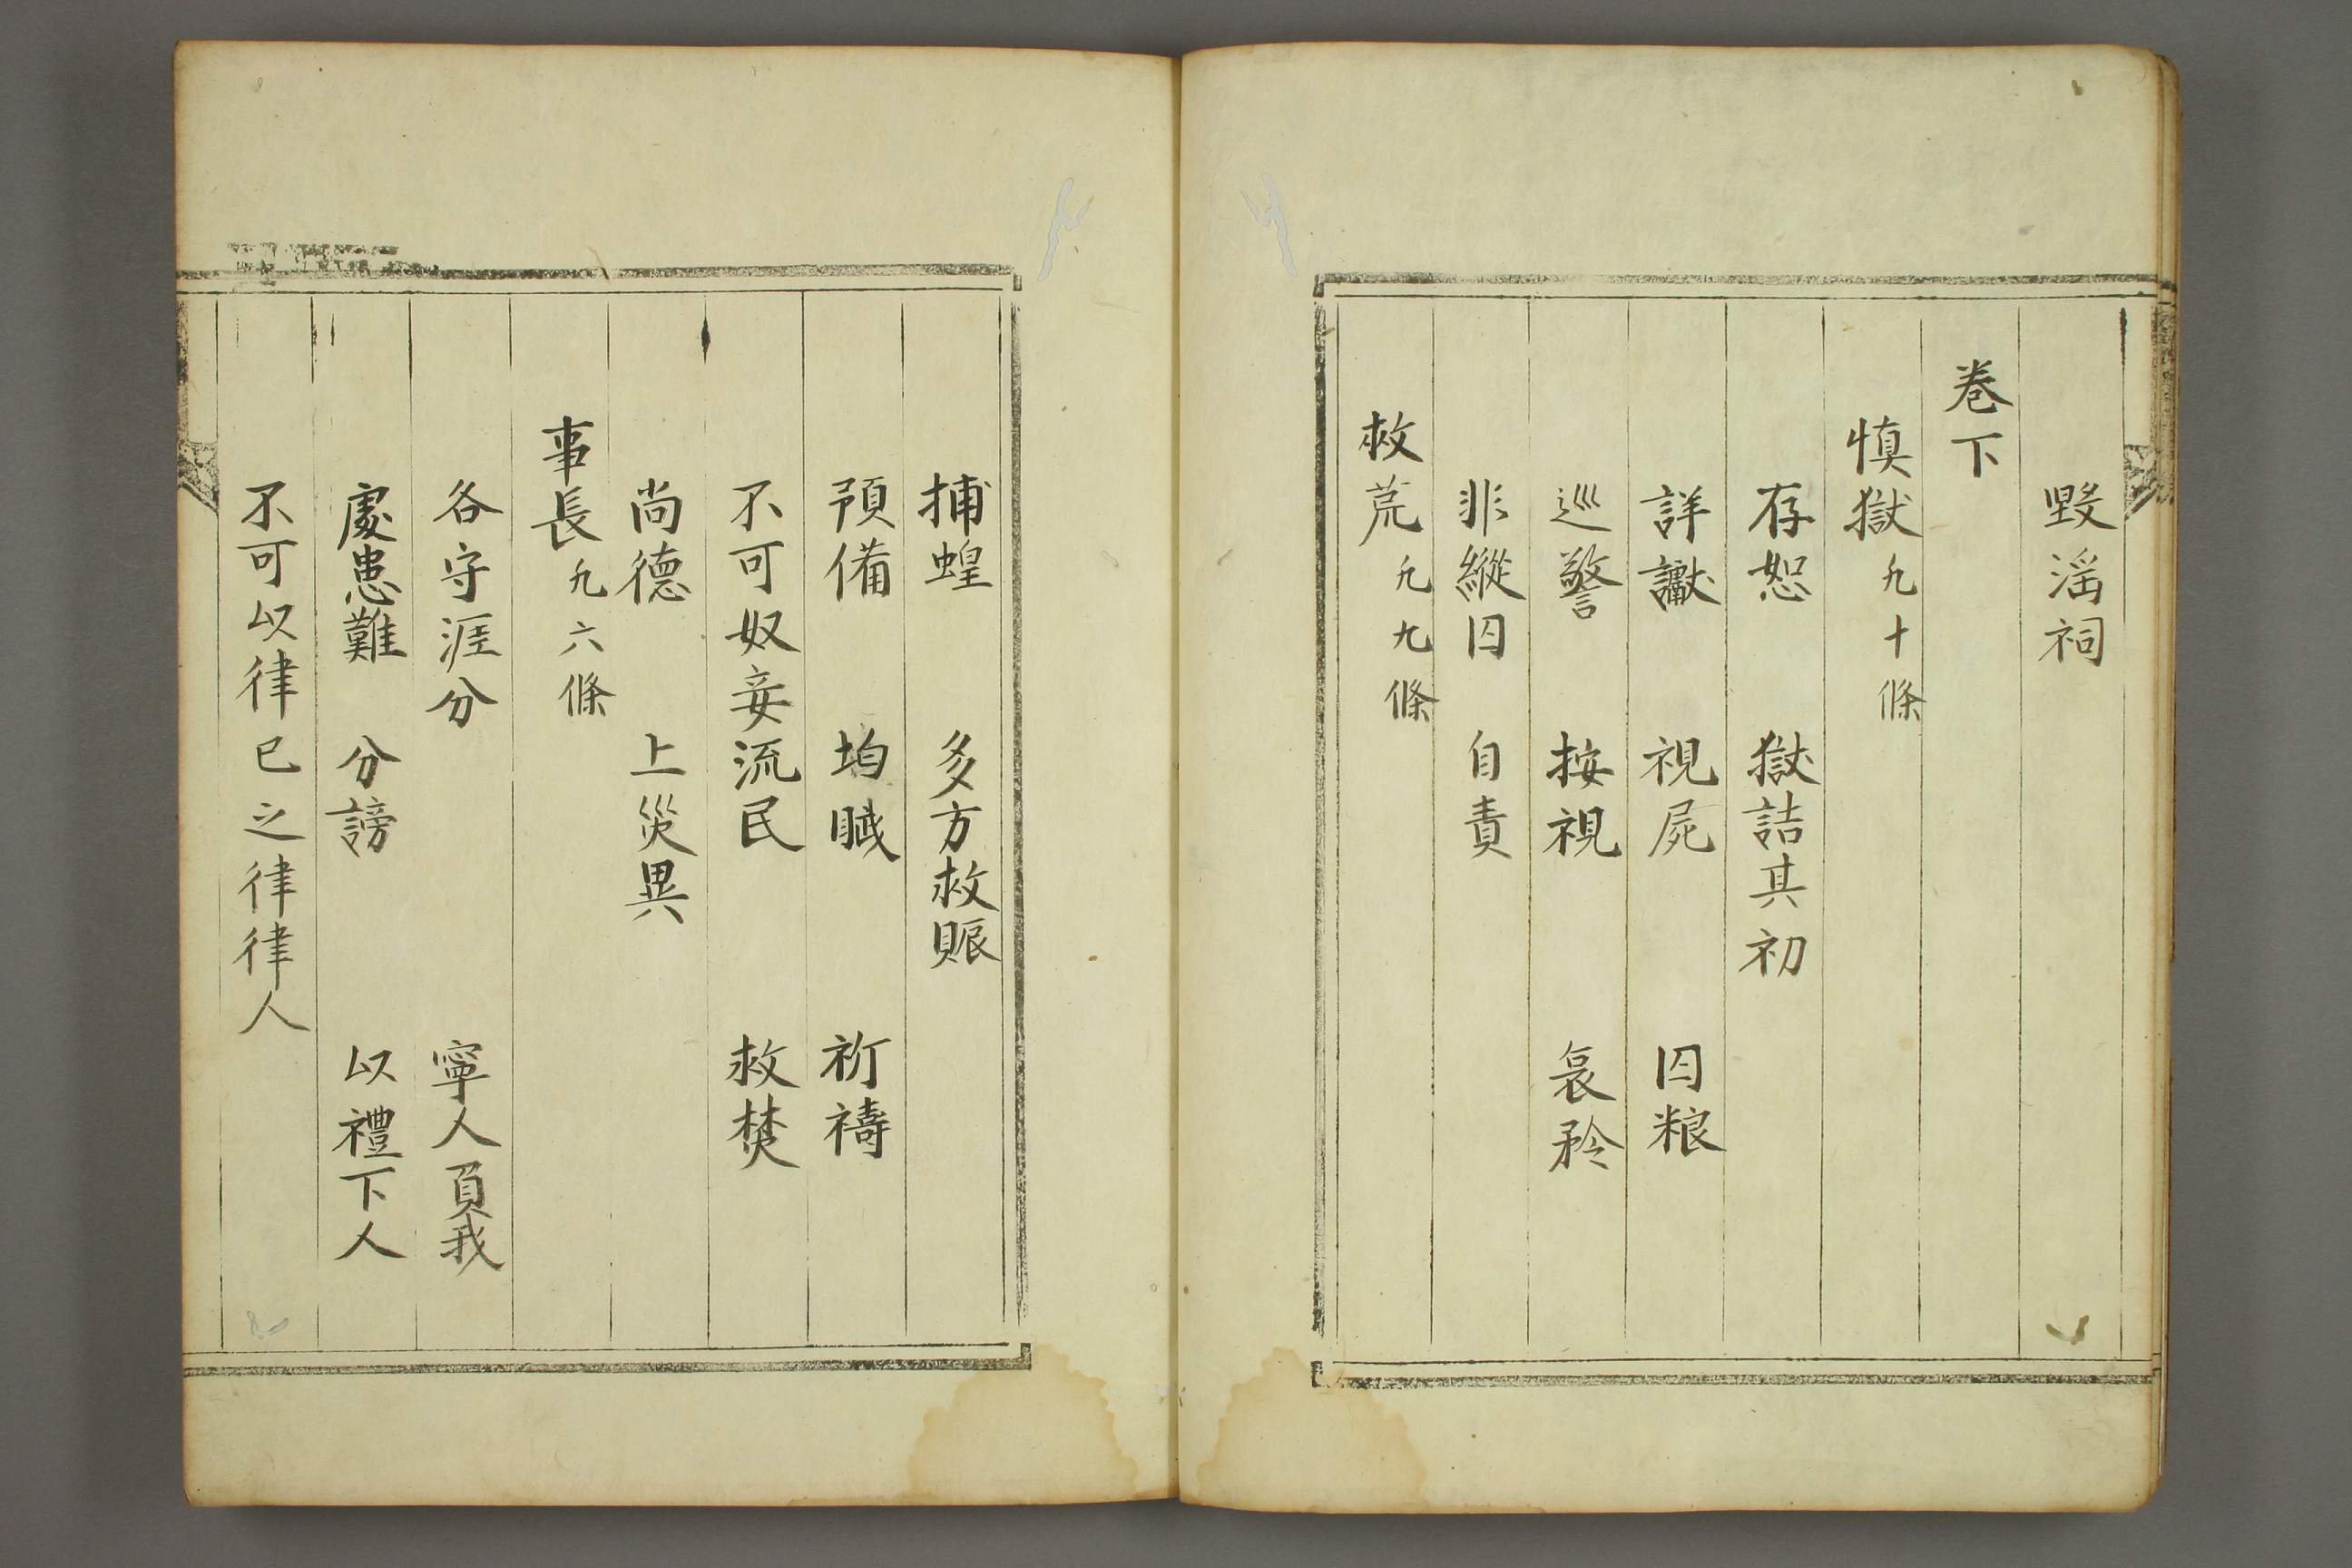 毀淫祠
卷下
慎獄 凡十條
存恕 獄詰其初
詳讞 視屍 囚粮
巡警 按視 哀矜
非縱囚 自責
救荒 凡九條
捕蝗 多方救賑
預備 均賦 祈禱
不可奴妾流民 救焚
尚德 上災異
事長 凡六條
各守涯分 寧人負我
處患難 分謗 以禮下人
不可以律己之律律人